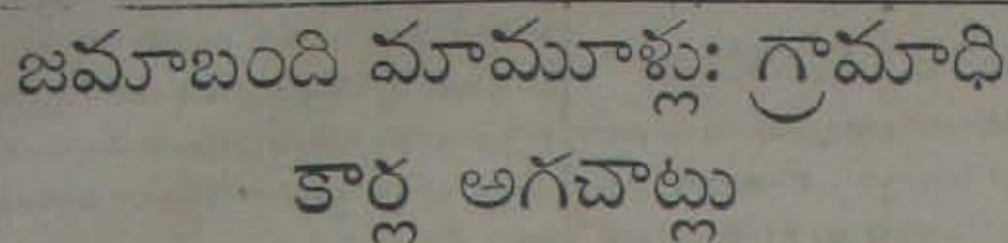 జమాబంది మామూళ్లు: గ్రామాధి
కార్ల అగచాట్లు